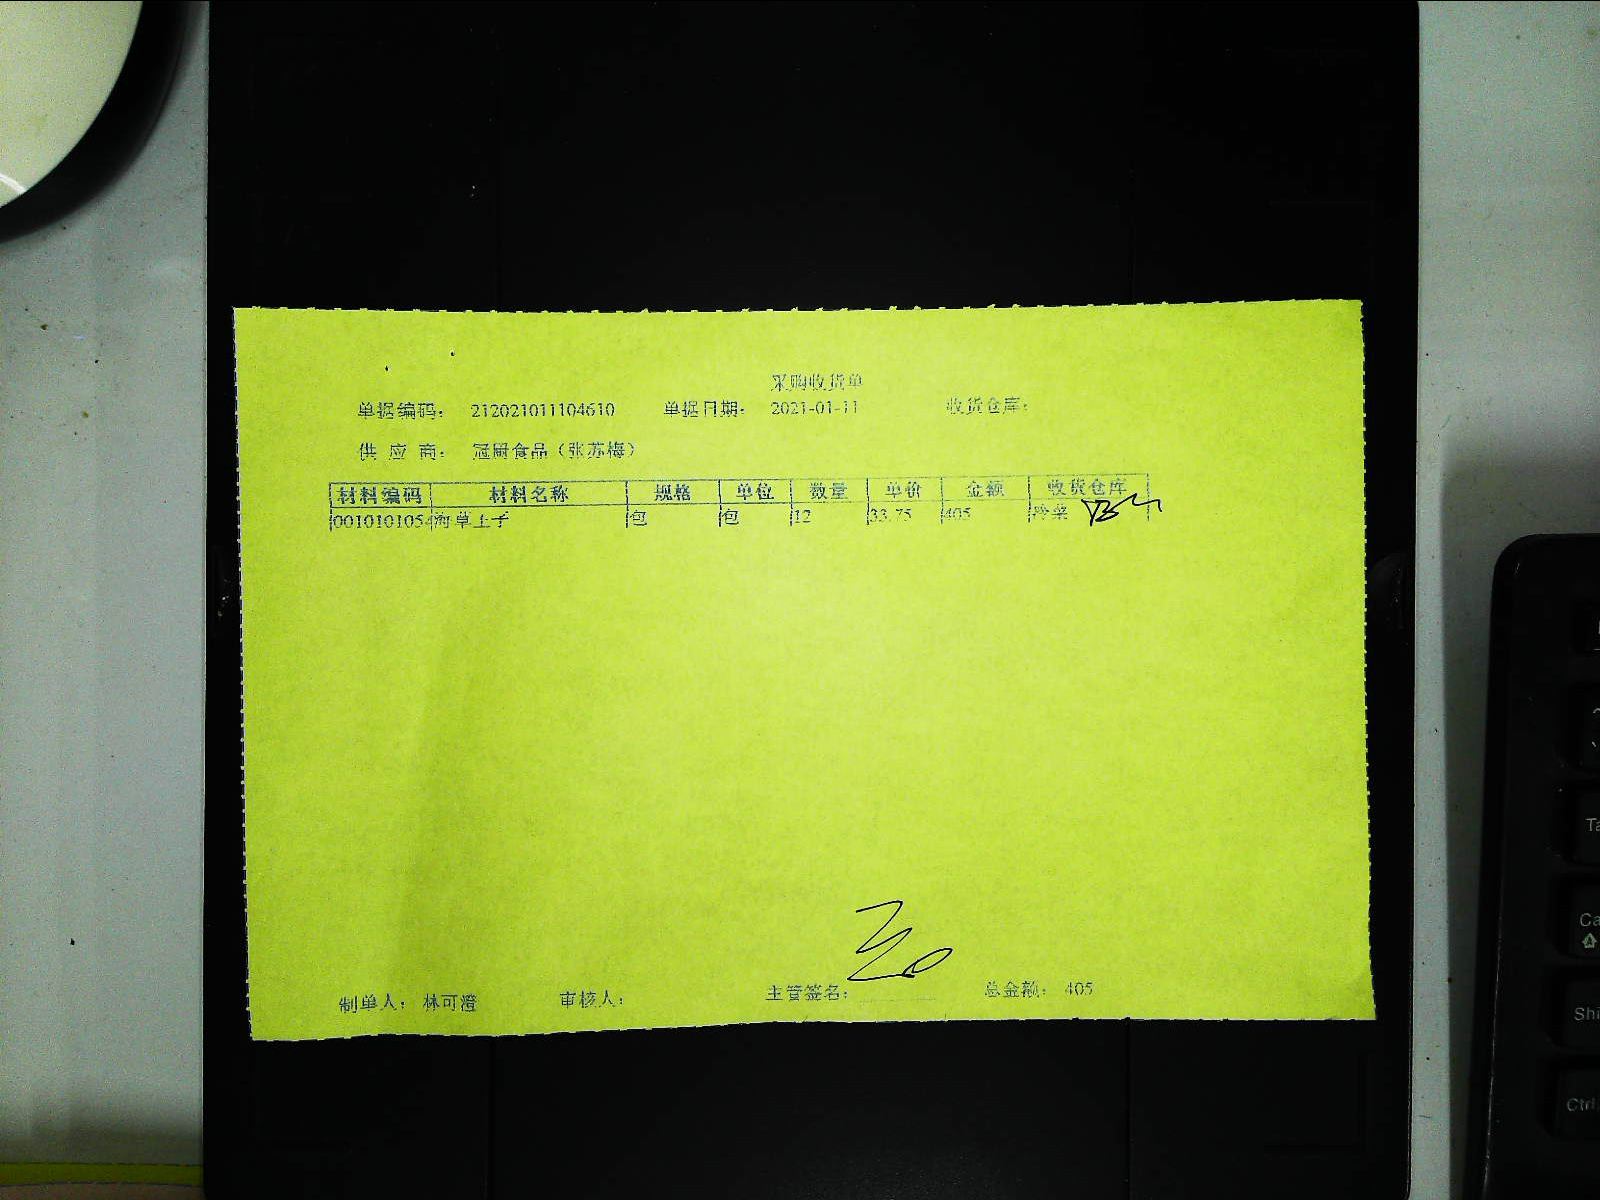 采购收货单
单据编码： 212021011104610 单据日期： 2021-01-11 收货仓库：
供 应 商： 冠厨食品（张苏梅）
材料编码 材料名称 规格 单位 数量 单价 金额 收货仓库
0010101054 海草王子 包 包 12 33.75 405 冷菜
制单人： 林可澄 审核人： 主管签名： 总金额： 405
Ta
Ca
Shi
Ctrl